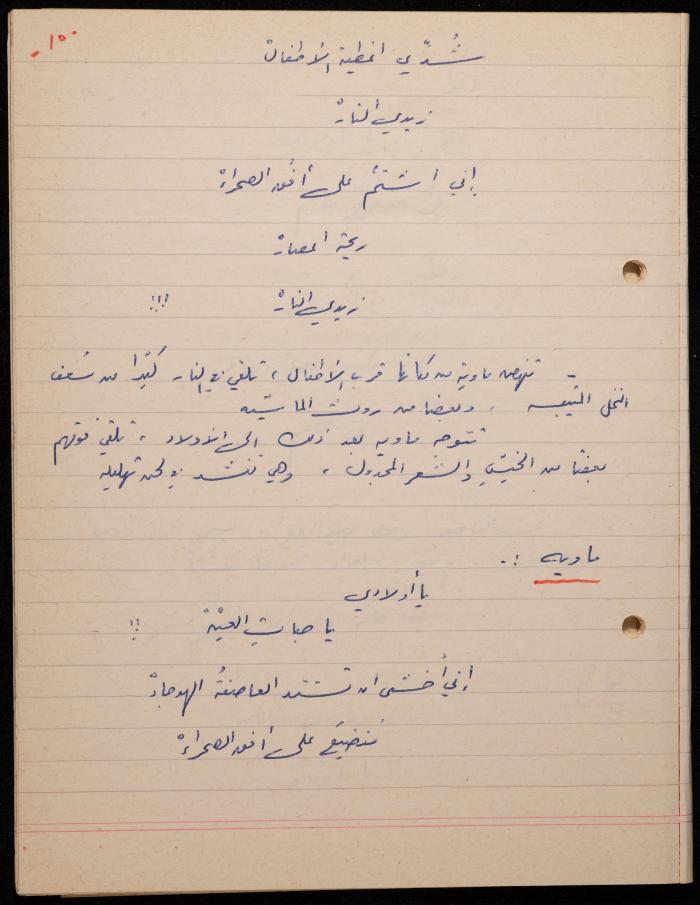 -١٥٠
شُدِّي اغطية الأطفالْ
زيدي النارْ
إني اشتمُّ على أفُق الصحراءْ
ريحة امصارْ
زيدي النارْ !!!
- تنهض ماويه من مكانها قرب الأطفال ، تلقي في النار كثيرًا من سُعف
النخل المتيبسه ، وبعضا من روث الماشيه
تتوجه ماويه بعد ذلك الى الأولاد ، تلقي فوقهم
بعضًا من الخيش والشعر المجدول ، وهي تنشد في لحن تهليله
ماويه :-
يا أولادي
يا حباتِ العينْ !!
إني أخشى ان تشتد العاصفةُ الهوجاءْ
فنضيَع على أفق الصحراءْ